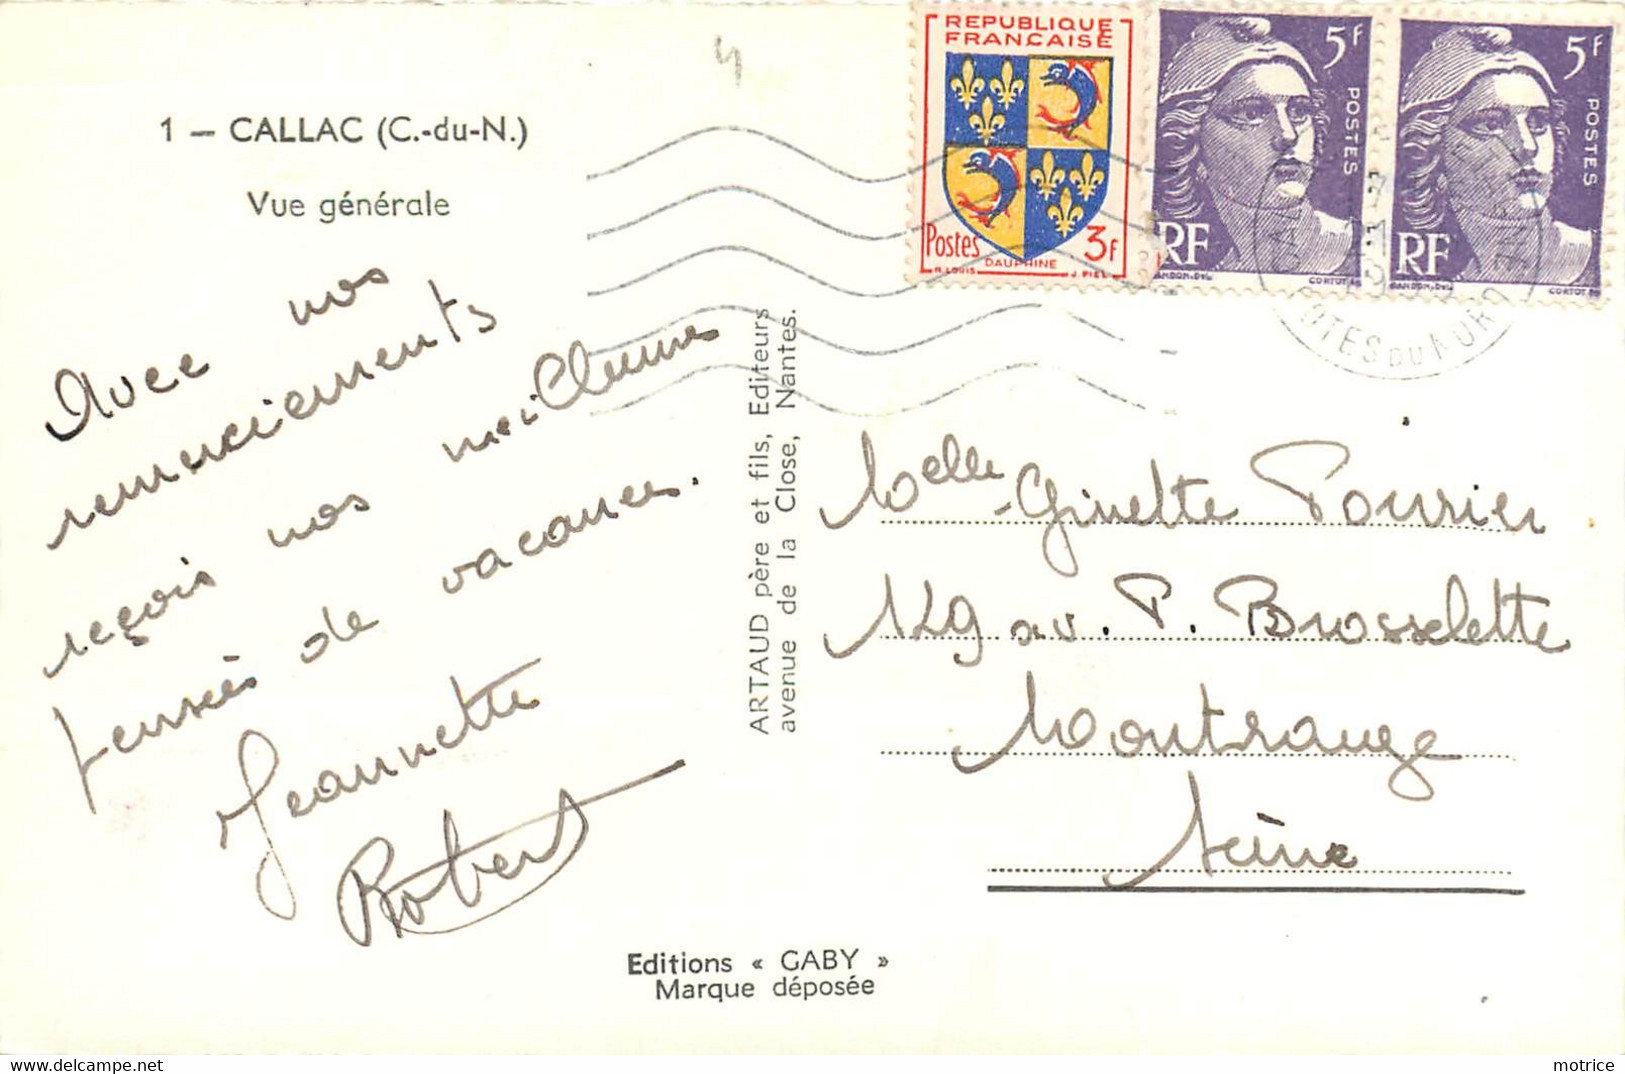 1 — CALLAC (C.-du-N.)
Vue générale
Avec nos
remerciements
reçois nos meilleures
pensées de vacances.
Jeannette
Robert
Editions « GABY »
Marque déposée
ARTAUD père et fils, Editeurs
avenue de la Close, Nantes.
REPUBLIQUE
FRANÇAISE
Postes 3F
DAUPHINE
H. LOUIS J. PIEL
5F
POSTES
RF
GANDON, Del. CORTOT
5F
POSTES
RF
GANDON, Del. CORTOT
COTES DU NORD
Melle Ginette Poirier
129 av. P. Brosselette
Montrouge
Seine
motrice